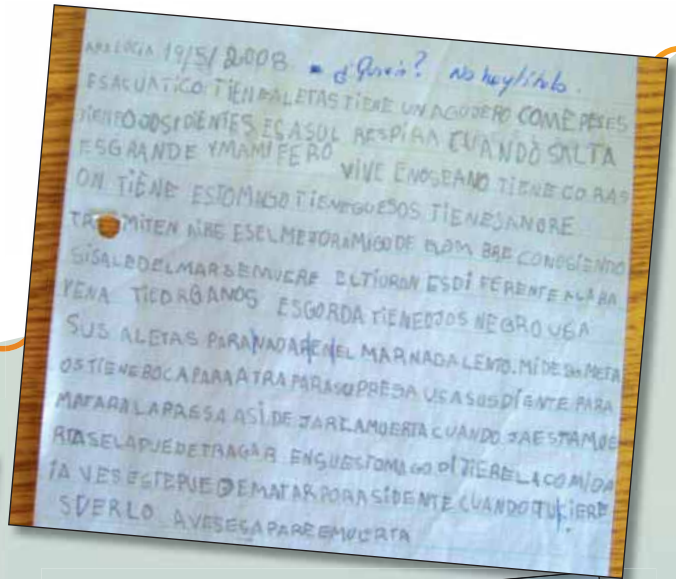 ANALOGIA 19/5/2008 - ¿Quién? No hay título.
ESACUATICO TIENEALETAS TIENE UNAGUGERO COMEPESES
TIENEOJOSIDIENTES ESASUL RESPIRA CUANDO SALTA
ESGRANDE YMAMIFERO VIVE ENOSEANO TIENE CORAS
ON TIENE ESTOMAGO TIENEGUESOS TIENESANGRE
MITEN AIRE ESELMEJORAMIGODE CONOSIENDO
SISALEDELMARSEMUERE ELTIURON ESDIFERENTE ALABA
YENA ORGANOS ESGORDA TIENEOJOS NEGRO USA
SUS ALETAS PARA NADAR EN EL MAR NADA LENTO. MIDE META
OS TIENE BOCA PARA ATRAPARASUPRESA USASUSDIENTE PARA
MATARALAPRESA ASI DEJARLAMUERTA CUANDO JAESTAMUE
RTASELAPUEDETRAGAR ENSUESTOMAGO DIJIERELACOMIDA
IA VESESTEPUEDEMATARPORASIDENTE CUANDO
SUERLO AVESESAPAREEMUERTA